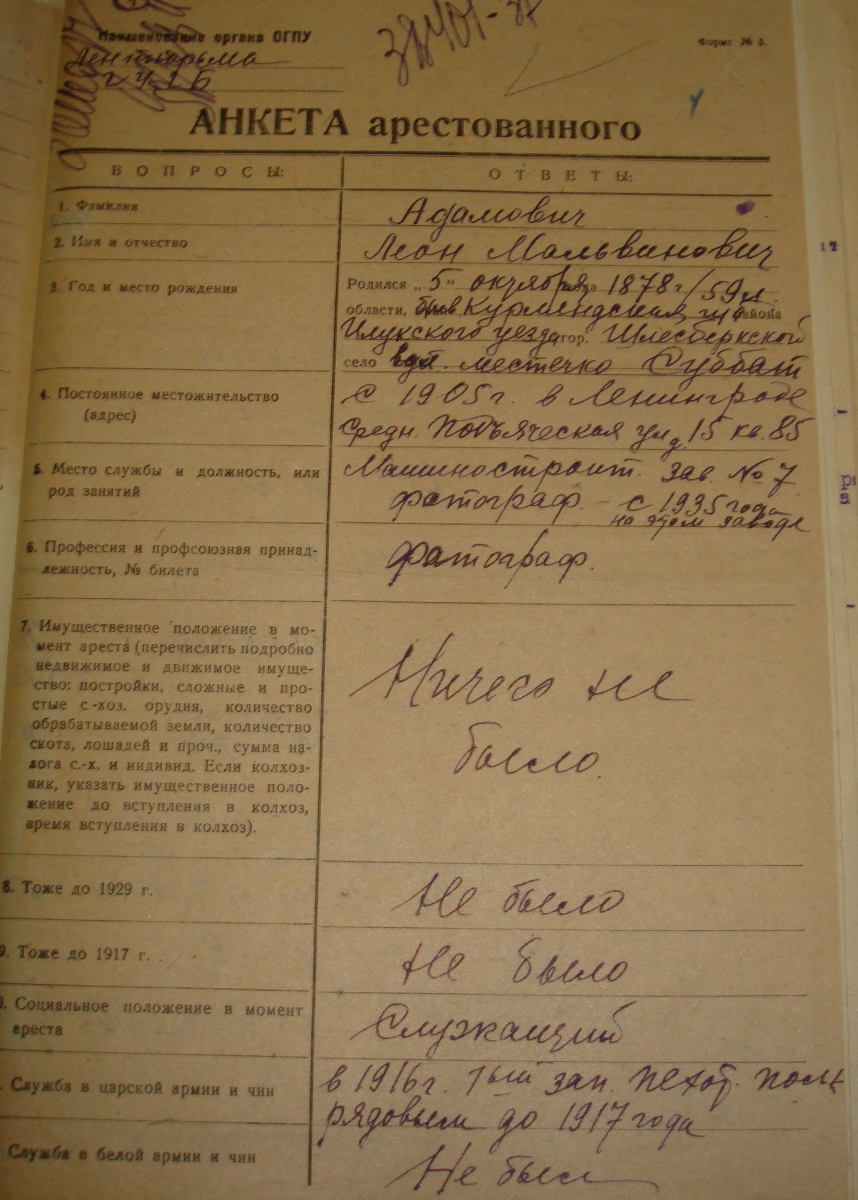 Наименование органа ОГПУ
38401-37
Форма № 5.
АНКЕТА арестованного
ВОПРОСЫ:
ОТВЕТЫ:
1. Фамилия
Адамович
2. Имя и отчество
Леон Мальвинович
3. Год и место рождения
Родился „5“ октября 1878 г/59 л.
области, быв Курляндская губ района
Илукского уезда гор. Шлосберкской
село вол. местечко Суббат
4. Постоянное местожительство
(адрес)
с 1905 г. в Ленинграде
Средн. Подъяческая ул д. 15 кв. 85
5. Место службы и должность, или
род занятий
Машиностроит. зав. № 7
фотограф. – с 1935 года
на этом заводе
6. Профессия и профсоюзная принад-
лежность, № билета
фотограф.
7. Имущественное положение в мо-
мент ареста (перечислить подробно
недвижимое и движимое имуще-
ство: постройки, сложные и про-
стые с.-хоз. орудия, количество
обрабатываемой земли, количество
скота, лошадей и проч., сумма на-
лога с.-х. и индивид. Если колхоз-
ник, указать имущественное поло-
жение до вступления в колхоз,
время вступления в колхоз).
Ничего не
было.
8. Тоже до 1929 г.
Не было
9. Тоже до 1917 г.
Не было
Социальное положение в момент
ареста
Служащий
Служба в царской армии и чин
в 1916 г. 1ый зап. пехот. полк
рядовым до 1917 года
Служба в белой армии и чин
Не был